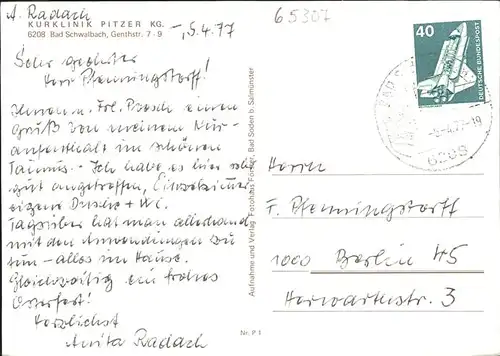 A. Radach
KURKLINIK PITZER KG.
6208 Bad Schwalbach, Genthstr. 7 - 9
5.4.77
65307
Sehr geehrter
Herr Pfenningstorff!
Ihnen u. Frl. einen
Gruß von meinem Kur-
aufenthalt im schönen
Taunus. - Ich habe es hier sehr
gut angetroffen, Einzelzimmer
eigene Dusche + WC.
Tagsüber hat man allerhand
mit den Anwendungen zu
tun - alles im Hause.
Gleichzeitig ein frohes
Osterfest!
Herzlichst
Anita Radach
Aufnahme und Verlag: Fotohaus Förster, Bad Soden b. Salmünster
Nr. P 1
40
DEUTSCHE BUNDESPOST
-5.-4.77-19
6208
Herrn
F. Pfenningstorff
1000 Berlin 45
Herwarthstr. 3